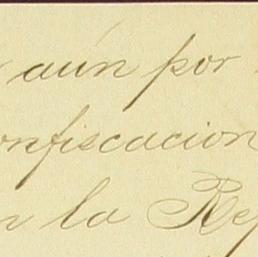 aún por
onfiscacion
n la Rep